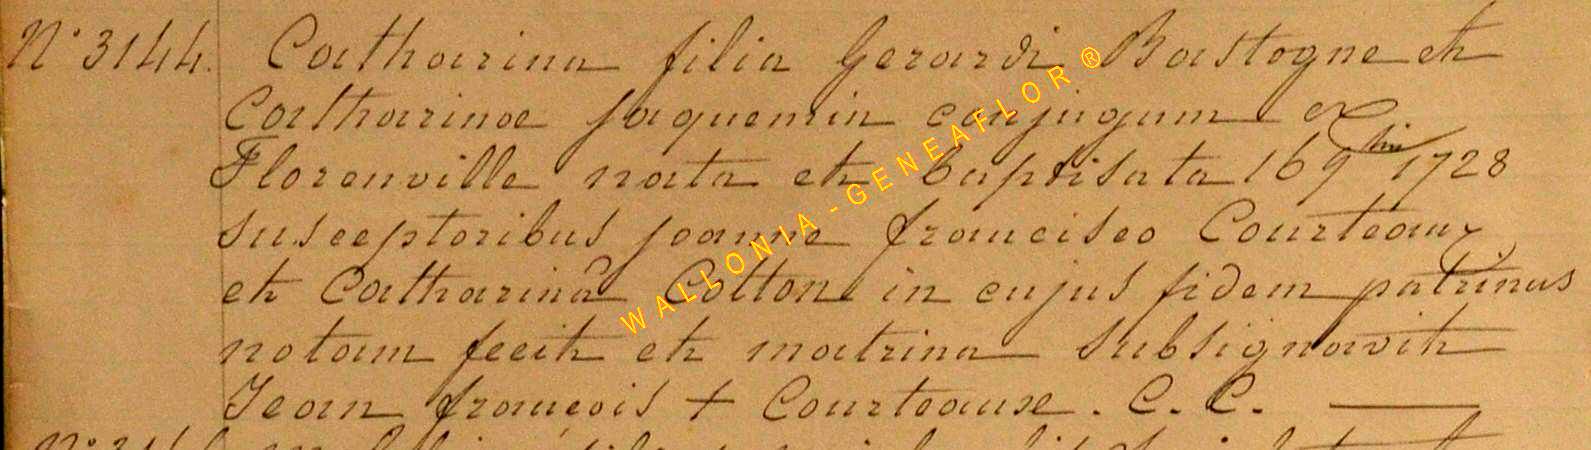 N° 3144. Catharina filia Gerardi Bastogne et
Catharinae jaquemin conjugum ex
Florenville nata et baptisata 16 9bris 1728
susceptoribus joanne francisco Courteaux
et Catharina Colton in cujus fidem patrinus
notam fecit et matrina subsignavit
Jean françois + Courteause. C. C.
WALLONIA - GENEAFLOR ®